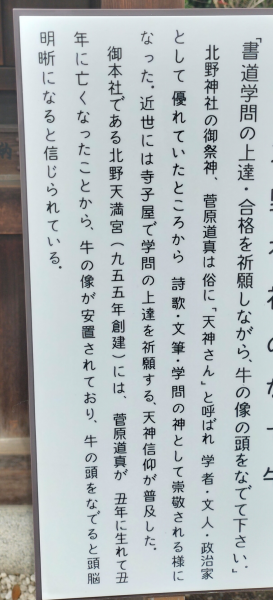 「書道学問の上達・合格を祈願しながら、牛の像の頭をなでて下さい.」
北野神社の御祭神、菅原道真は俗に「天神さん」と呼ばれ 学者・文人・政治家
として 優れていたところから 詩歌・文筆・学問の神として崇敬される様に
なった.近世には寺子屋で学問の上達を祈願する、天神信仰が普及した.
御本社である北野天満宮(九五五年創建)には、菅原道真が 丑年に生れて丑
年に亡くなったことから、牛の像が安置されており、牛の頭をなでると頭脳
明晰になると信じられている.